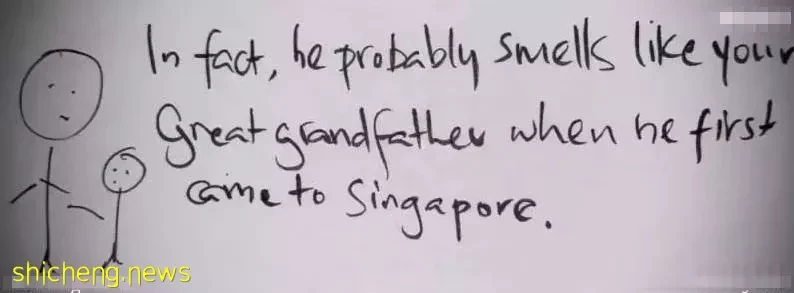 In fact, he probably smells like your
Great grandfather when he first
came to Singapore.
shicheng.news